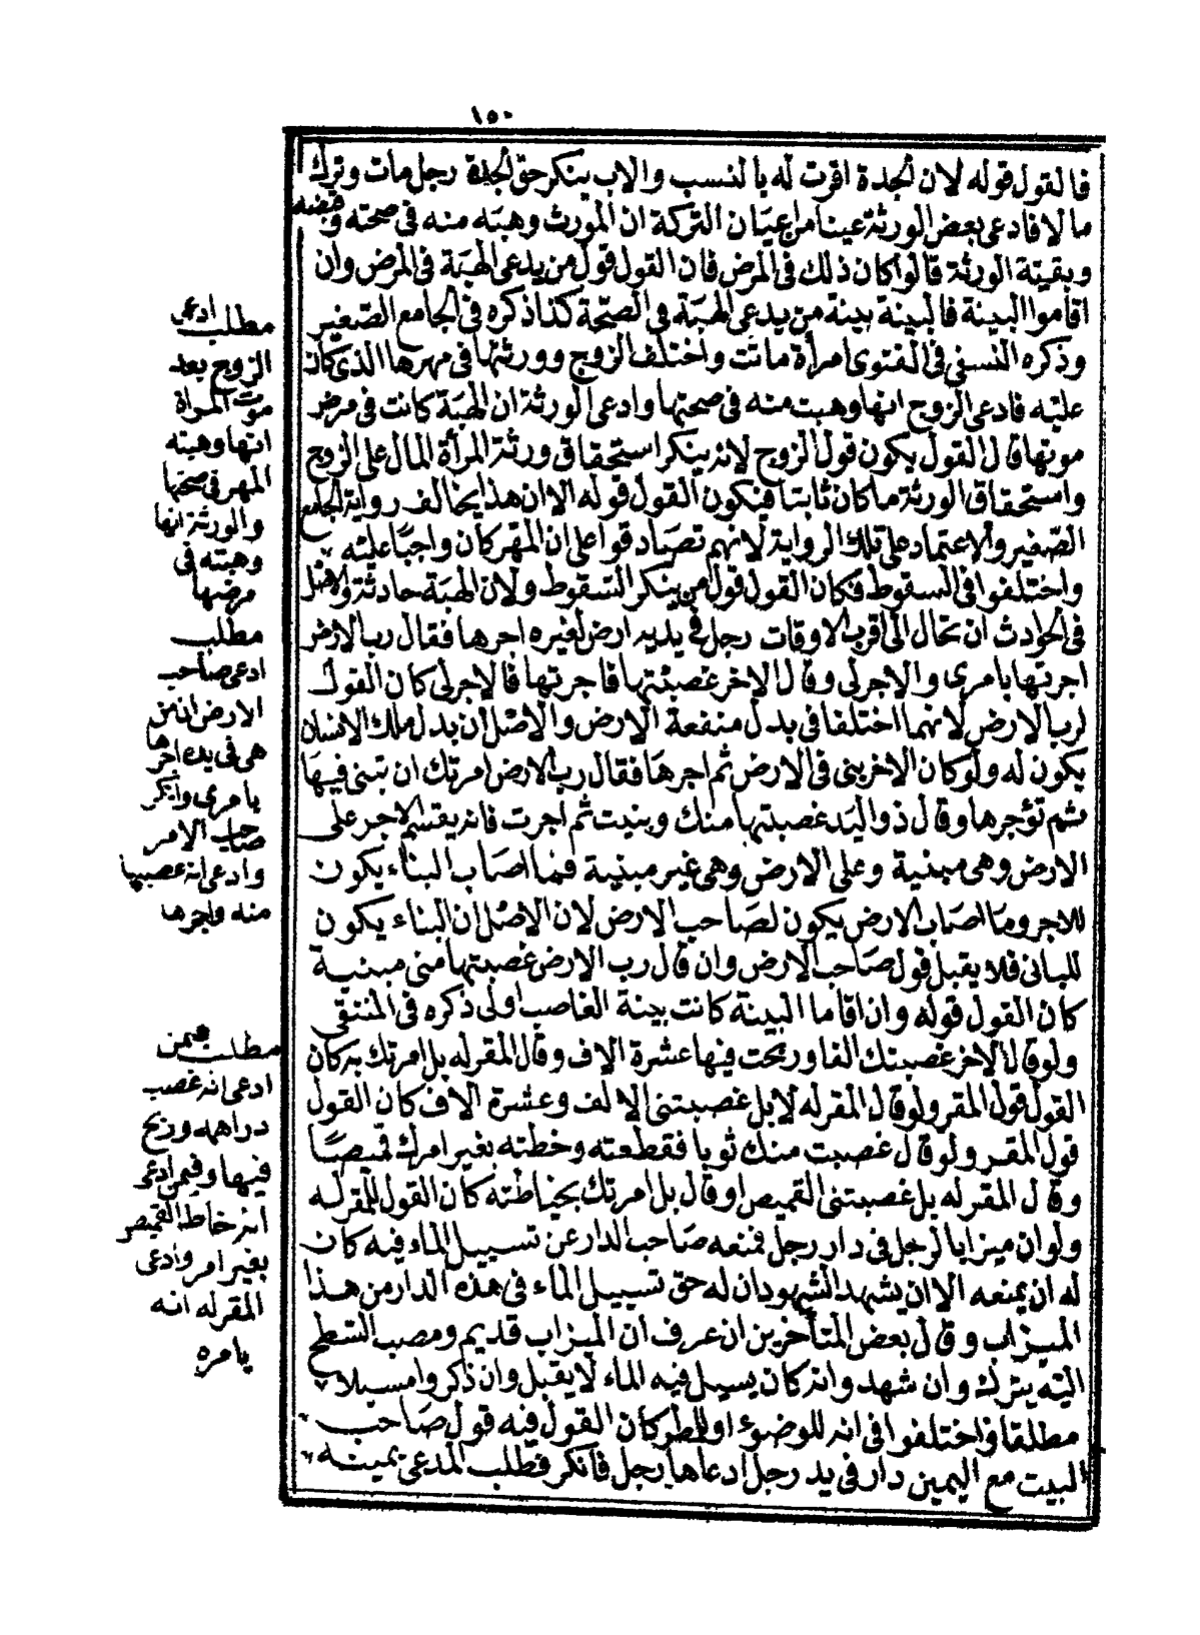 ١٥٠
فالقول قوله لان الجدة اقرت له بالنسب والاب ينكر حق الجدة رجل مات وترك
مالا فادعى بعض الورثة عينا من اعيان التركة ان المورث وهبه منه فى صحته وقبضه
وبقية الورثة قالوا كان ذلك فى المرض فان القول قول من يدعى الهبة فى المرض وان
اقاموا البينة فالبينة بينة من يدعى الهبة فى الصحة كذا ذكره فى الجامع الصغير
وذكره النسفى فى الفتوى امرأة ماتت واختلف الزوج وورثتها فى مهرها الذى كان
عليه فادعى الزوج انها وهبت منه فى صحتها وادعى الورثة ان الهبة كانت فى مرض
موتها قال القول يكون قول الزوج لانه ينكر استحقاق ورثة المرأة المال على الزوج
واستحقاق الورثة ما كان ثابتا فيكون القول قوله الا ان هذا يخالف رواية الجامع
الصغير والاعتماد على تلك الرواية لانهم تصادقوا على ان المهر كان واجبا عليه
واختلفوا فى السقوط فكان القول قول من ينكر السقوط ولان الهبة حادثة والاصل
فى الحوادث ان تحال الى اقرب الاوقات رجل فى يديه ارض لغيره اجرها فقال رب الارض
اجرتها بامرى والاجر لى وقال الاخر غصبتها فاجرتها فالاجر لى كان القول
لرب الارض لانهما اختلفا فى بدل منفعة الارض والاصل ان بدل ملك الانسان
يكون له ولو كان الاخر بنى فى الارض ثم اجرها فقال رب الارض امرتك ان تبنى فيها
ثم تؤجرها وقال ذو اليد غصبتها منك وبنيت ثم اجرت فانه يقسم الاجر على
الارض وهى مبنية وعلى الارض وهى غير مبنية فما اصاب البناء يكون
للاجر وما اصاب الارض يكون لصاحب الارض لان الاصل ان البناء يكون
للبانى فلا يقبل قول صاحب الارض وان قال رب الارض غصبتها منى مبنية
كان القول قوله وان اقاما البينة كانت بينة الغاصب اولى ذكره فى المنتقى
ولو قال لاخر غصبتك الفا وربحت فيها عشرة الاف وقال المقر له بل امرتك به كان
القول قول المقر ولو قال المقر له لا بل غصبتنى الالف وعشرة الاف كان القول
قول المقر ولو قال غصبت منك ثوبا فقطعته وخطته بغير امرك قميصا
وقال المقر له بل غصبتنى القميص او قال بل امرتك بخياطته كان القول للمقر له
ولو ان ميزابا لرجل فى دار رجل فمنعه صاحب الدار عن تسييل الماء فيه كان
له ان يمنعه الا ان يشهد الشهود ان له حق تسييل الماء فى هذه الدار من هذا
الميزاب وقال بعض المتأخرين ان عرف ان الميزاب قديم ومصب السطح
اليه يترك وان شهدوا انه كان يسيل فيه الماء لا يقبل وان ذكروا مسيلا
مطلقا واختلفوا فى انه للوضوء او للمطر كان القول فيه قول صاحب
البيت مع اليمين دار فى يد رجل ادعاها رجل فانكر فطلب المدعى يمينه
مطلب ادعى
الزوج بعد
موت المرأة
انها وهبته
المهر فى صحتها
والورثة انها
وهبته فى
مرضها
مطلب
ادعى صاحب
الارض ان من
هى فى يده اجرها
بامرى وانكر
صاحب الامر
وادعى انه غصبها
منه واجرها
مطلب فيمن
ادعى انه غصب
دراهمه وربح
فيها وفيمن ادعى
انه خاط القميص
بغير امر وادعى
المقر له انه
بامره